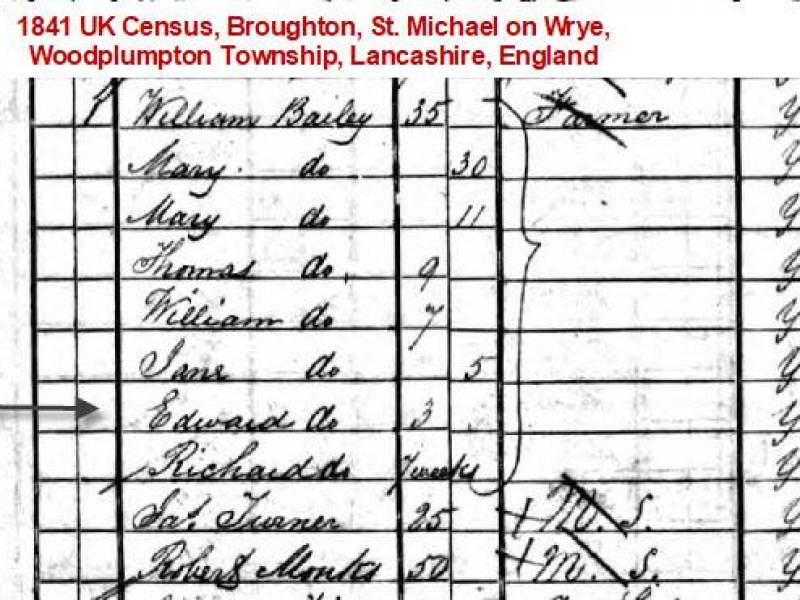 1841 UK Census, Broughton, St. Michael on Wrye,
Woodplumpton Township, Lancashire, England
1 William Bailey 35 Farmer y
Mary do 30 y
Mary do 11 y
Thomas do 9 y
William do 7 y
Jane do 5 y
Edward do 3 y
Richard do 7 weeks y
Jas. Turner 25 M. S. y
Robert Monks 50 M. S. y